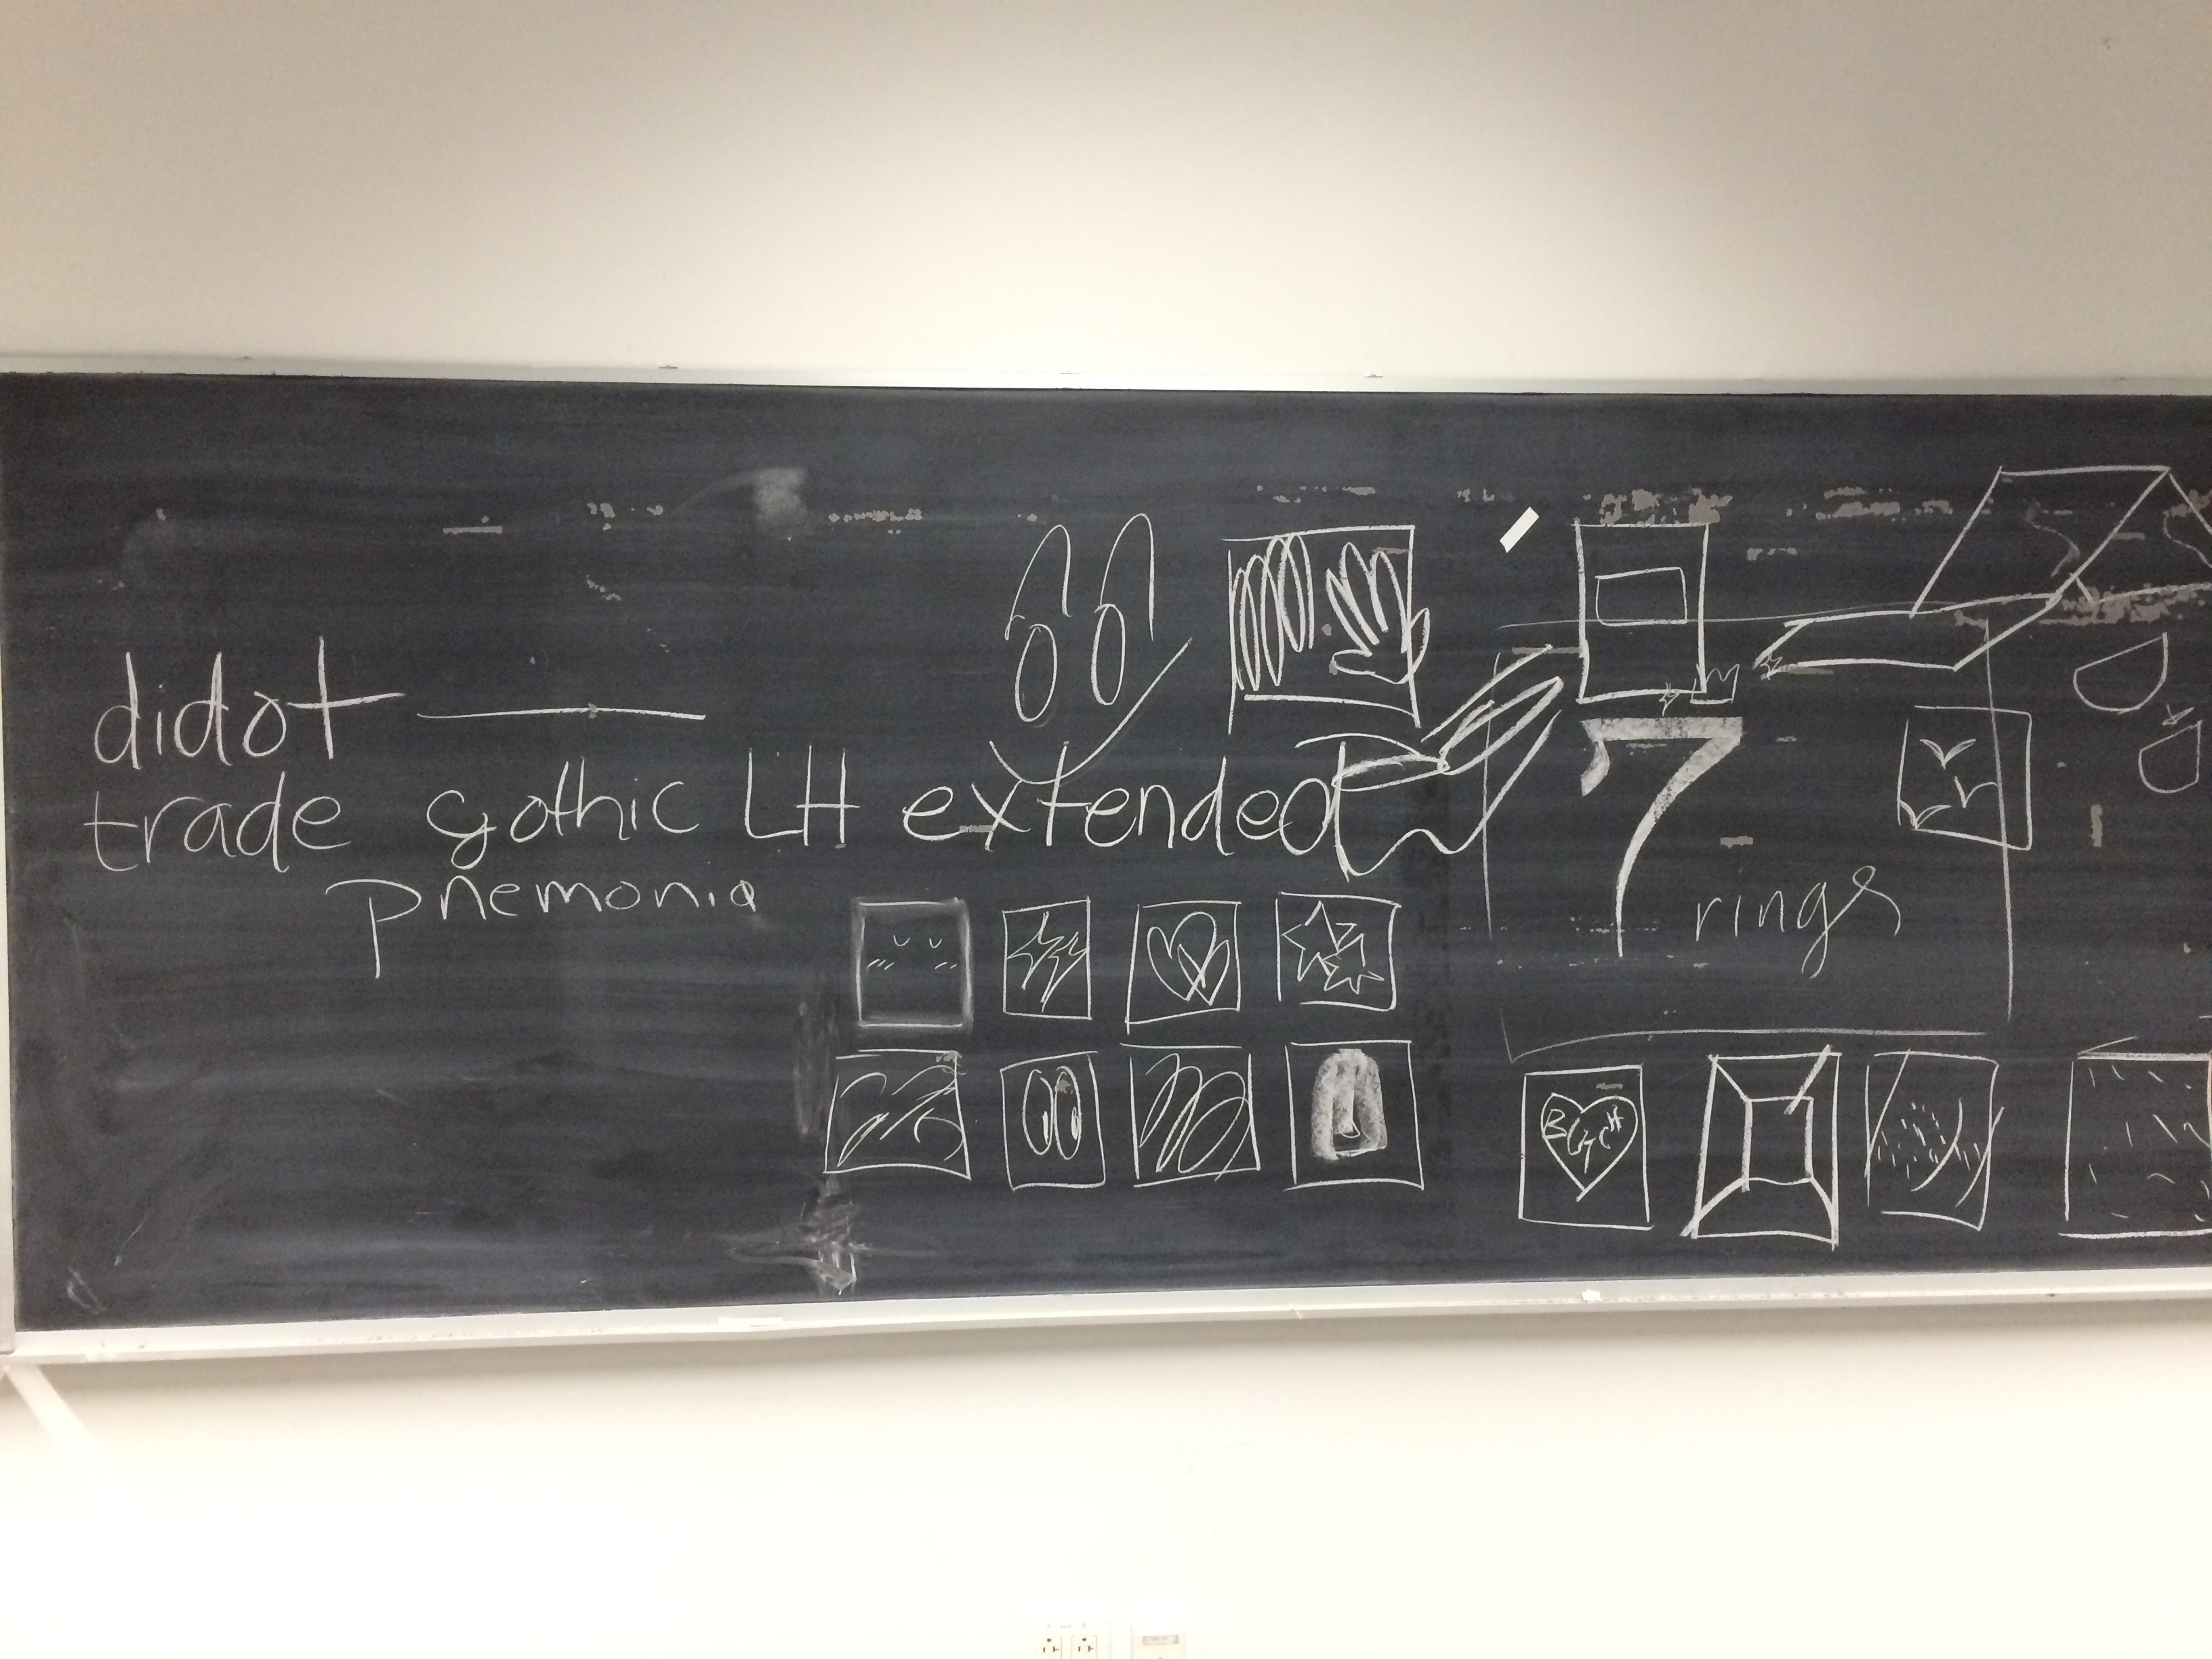 didot
trade gothic LH extended
pnemonia
7
rings
BITCH